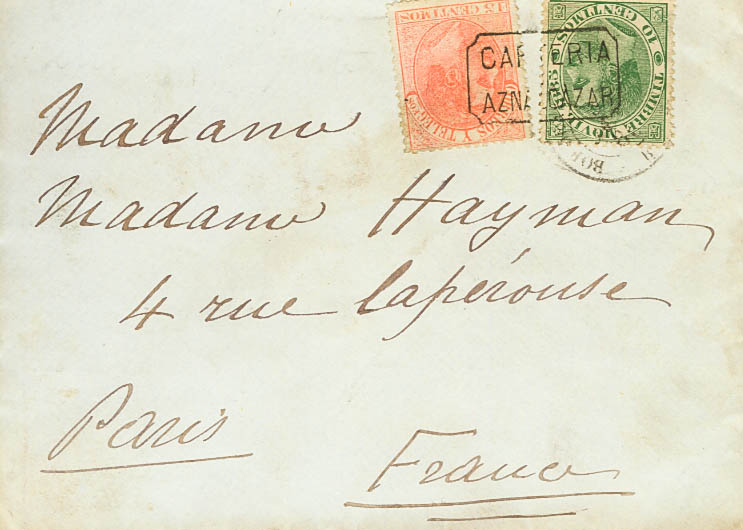 15 CENTIMOS
CORREOS Y TELEGFOS
10 CENTIMOS
TIMBRE MOVIL 1883
CARTERIA
AZNALCAZAR
Madame
Madame Hayman
4 rue Lapérouse
Paris
France